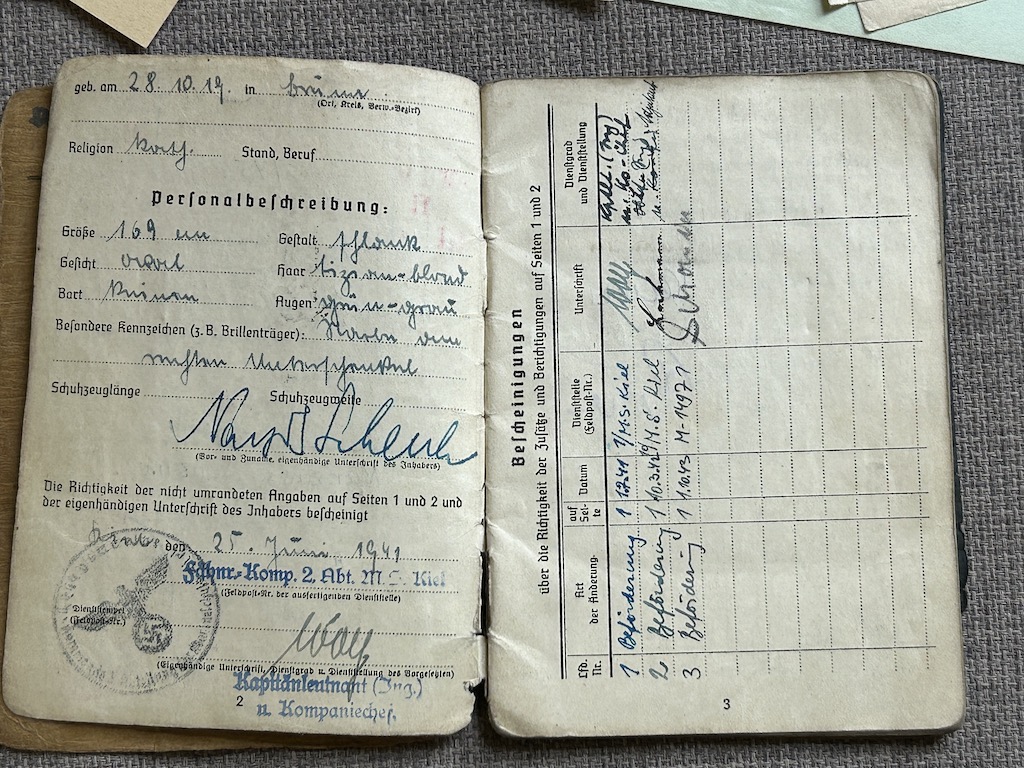 geb. am 28. 10. 19. in Brünn
(Ort, Kreis, Verw.-Bezirk)
Religion kath. Stand, Beruf
Personalbeschreibung:
Größe 169 cm Gestalt schlank
Gesicht oval Haar tizian-blond
Bart keinen Augen grün-grau
Besondere Kennzeichen (z.B. Brillenträger): Narbe am
rechten Unterschenkel
Schuhzeuglänge Schuhzeugweite
(Vor- und Zuname, eigenhändige Unterschrift des Inhabers)
Die Richtigkeit der nicht umrandeten Angaben auf Seiten 1 und 2 und
der eigenhändigen Unterschrift des Inhabers bescheinigt
den 25. Juni 1941
Fähnr.-Komp. 2. Abt. M. S. Kiel
(Feldpost-Nr. der ausfertigenden Dienststelle)
Dienststempel
(Feldpost-Nr.)
(Eigenhändige Unterschrift, Dienstgrad u. Dienststellung des Vorgesetzten)
Kapitänleutnant (Ing.)
u. Kompaniechef.
2
Bescheinigungen
über die Richtigkeit der Zusätze und Berichtigungen auf Seiten 1 und 2
Lfd. Nr. Art der Änderung auf Sei-te Datum Dienststelle (Feldpost-Nr.) Unterschrift Dienstgrad und Dienststellung
1 Beförderung 1 1.7.41 1/M.S. Kiel
2 Beförderung 1 M.S. Kiel
3 Beförderung 1 1.10.43 M-14971
3